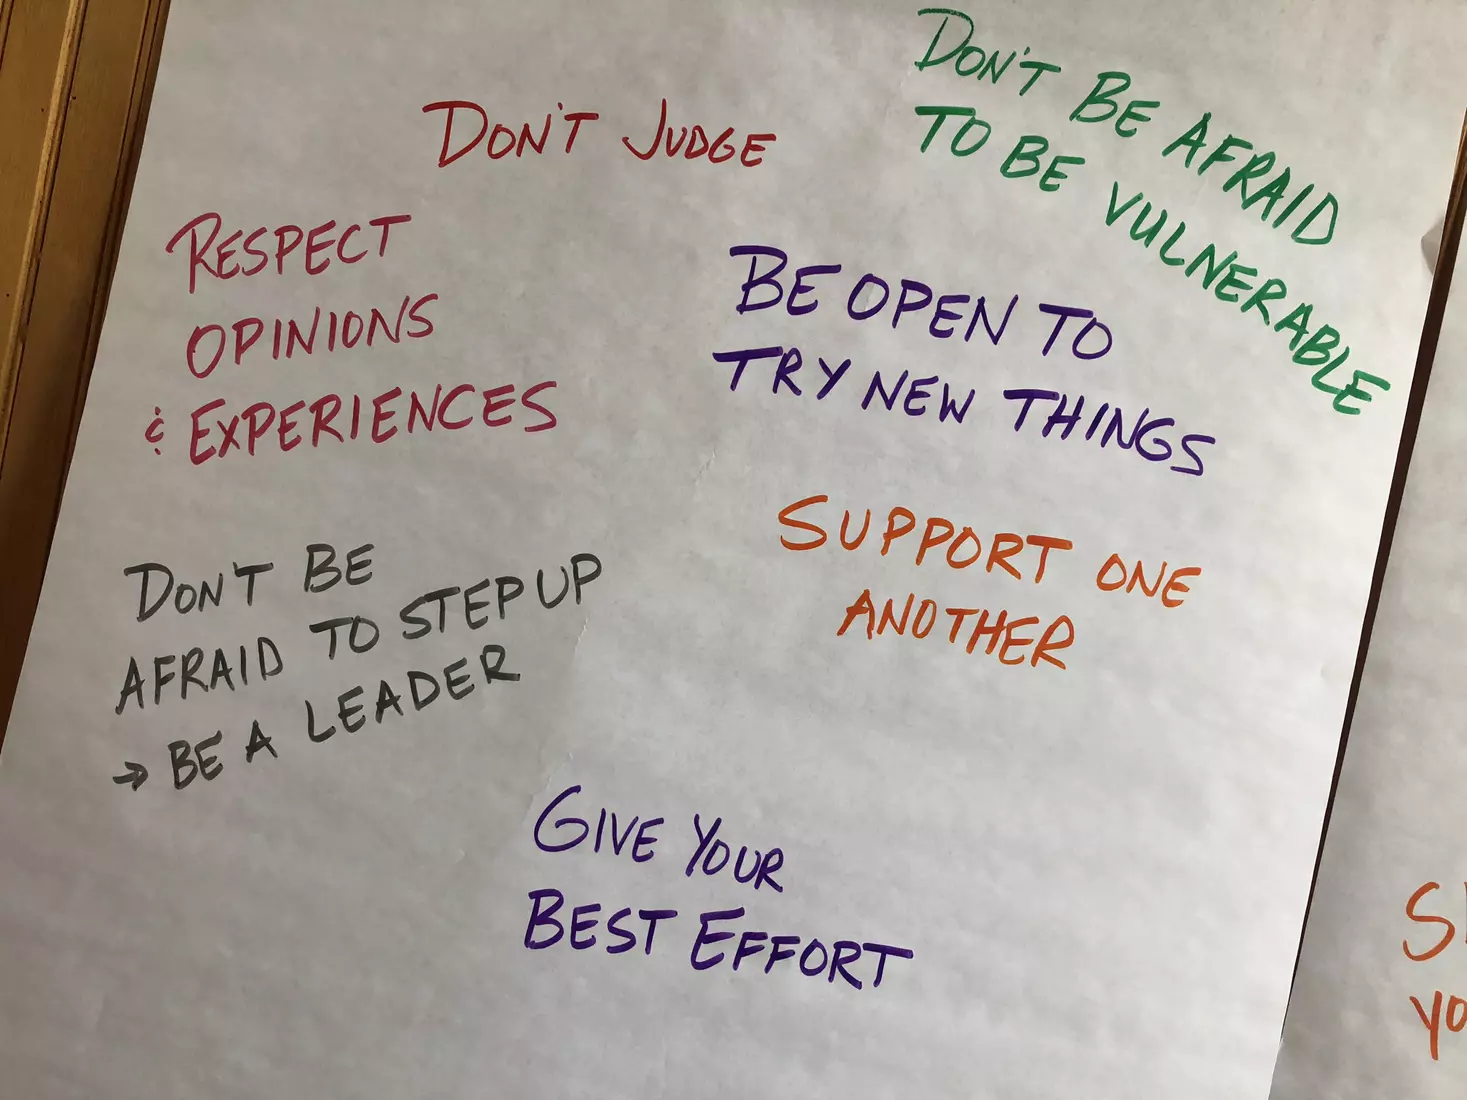 DON'T JUDGE
DON'T BE AFRAID
TO BE VULNERABLE
RESPECT
OPINIONS
& EXPERIENCES
BE OPEN TO
TRY NEW THINGS
DON'T BE
AFRAID TO STEP UP
→ BE A LEADER
SUPPORT ONE
ANOTHER
GIVE YOUR
BEST EFFORT